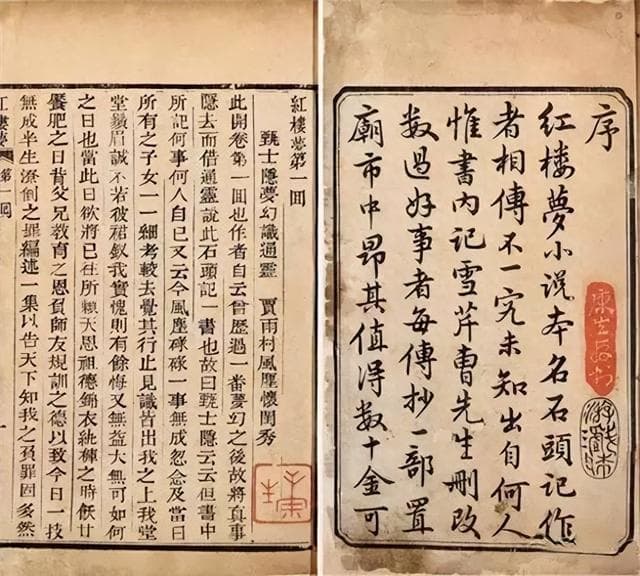 序
紅楼夢小说本名石頭記作
者相傳不一究未知出自何人
惟書内記雪芹曹先生刪改
数過好事者每傳抄一部置
廟市中昂其值得数十金可
紅樓夢第一回
甄士隱夢幻識通靈 賈雨村風塵懷閨秀
此開卷第一回也作者自云曾歷過一番夢幻之後故將真事
隱去而借通靈說此石頭記一書也故曰甄士隱云云但書中
所記何事何人自己又云今風塵碌碌一事無成忽念及當日
所有之子女一一細考較去覺其行止見識皆出我之上我堂
堂鬚眉誠不若彼裙釵我實愧則有餘悔又無益大無可如何
之日也當此日欲將已往所賴天恩祖德錦衣紈褲之時飫甘
饜肥之日背父兄教育之恩負師友規訓之德以致今日一技
無成半生潦倒之罪編述一集以告天下知我之負罪固多然
紅樓夢 第一回 一